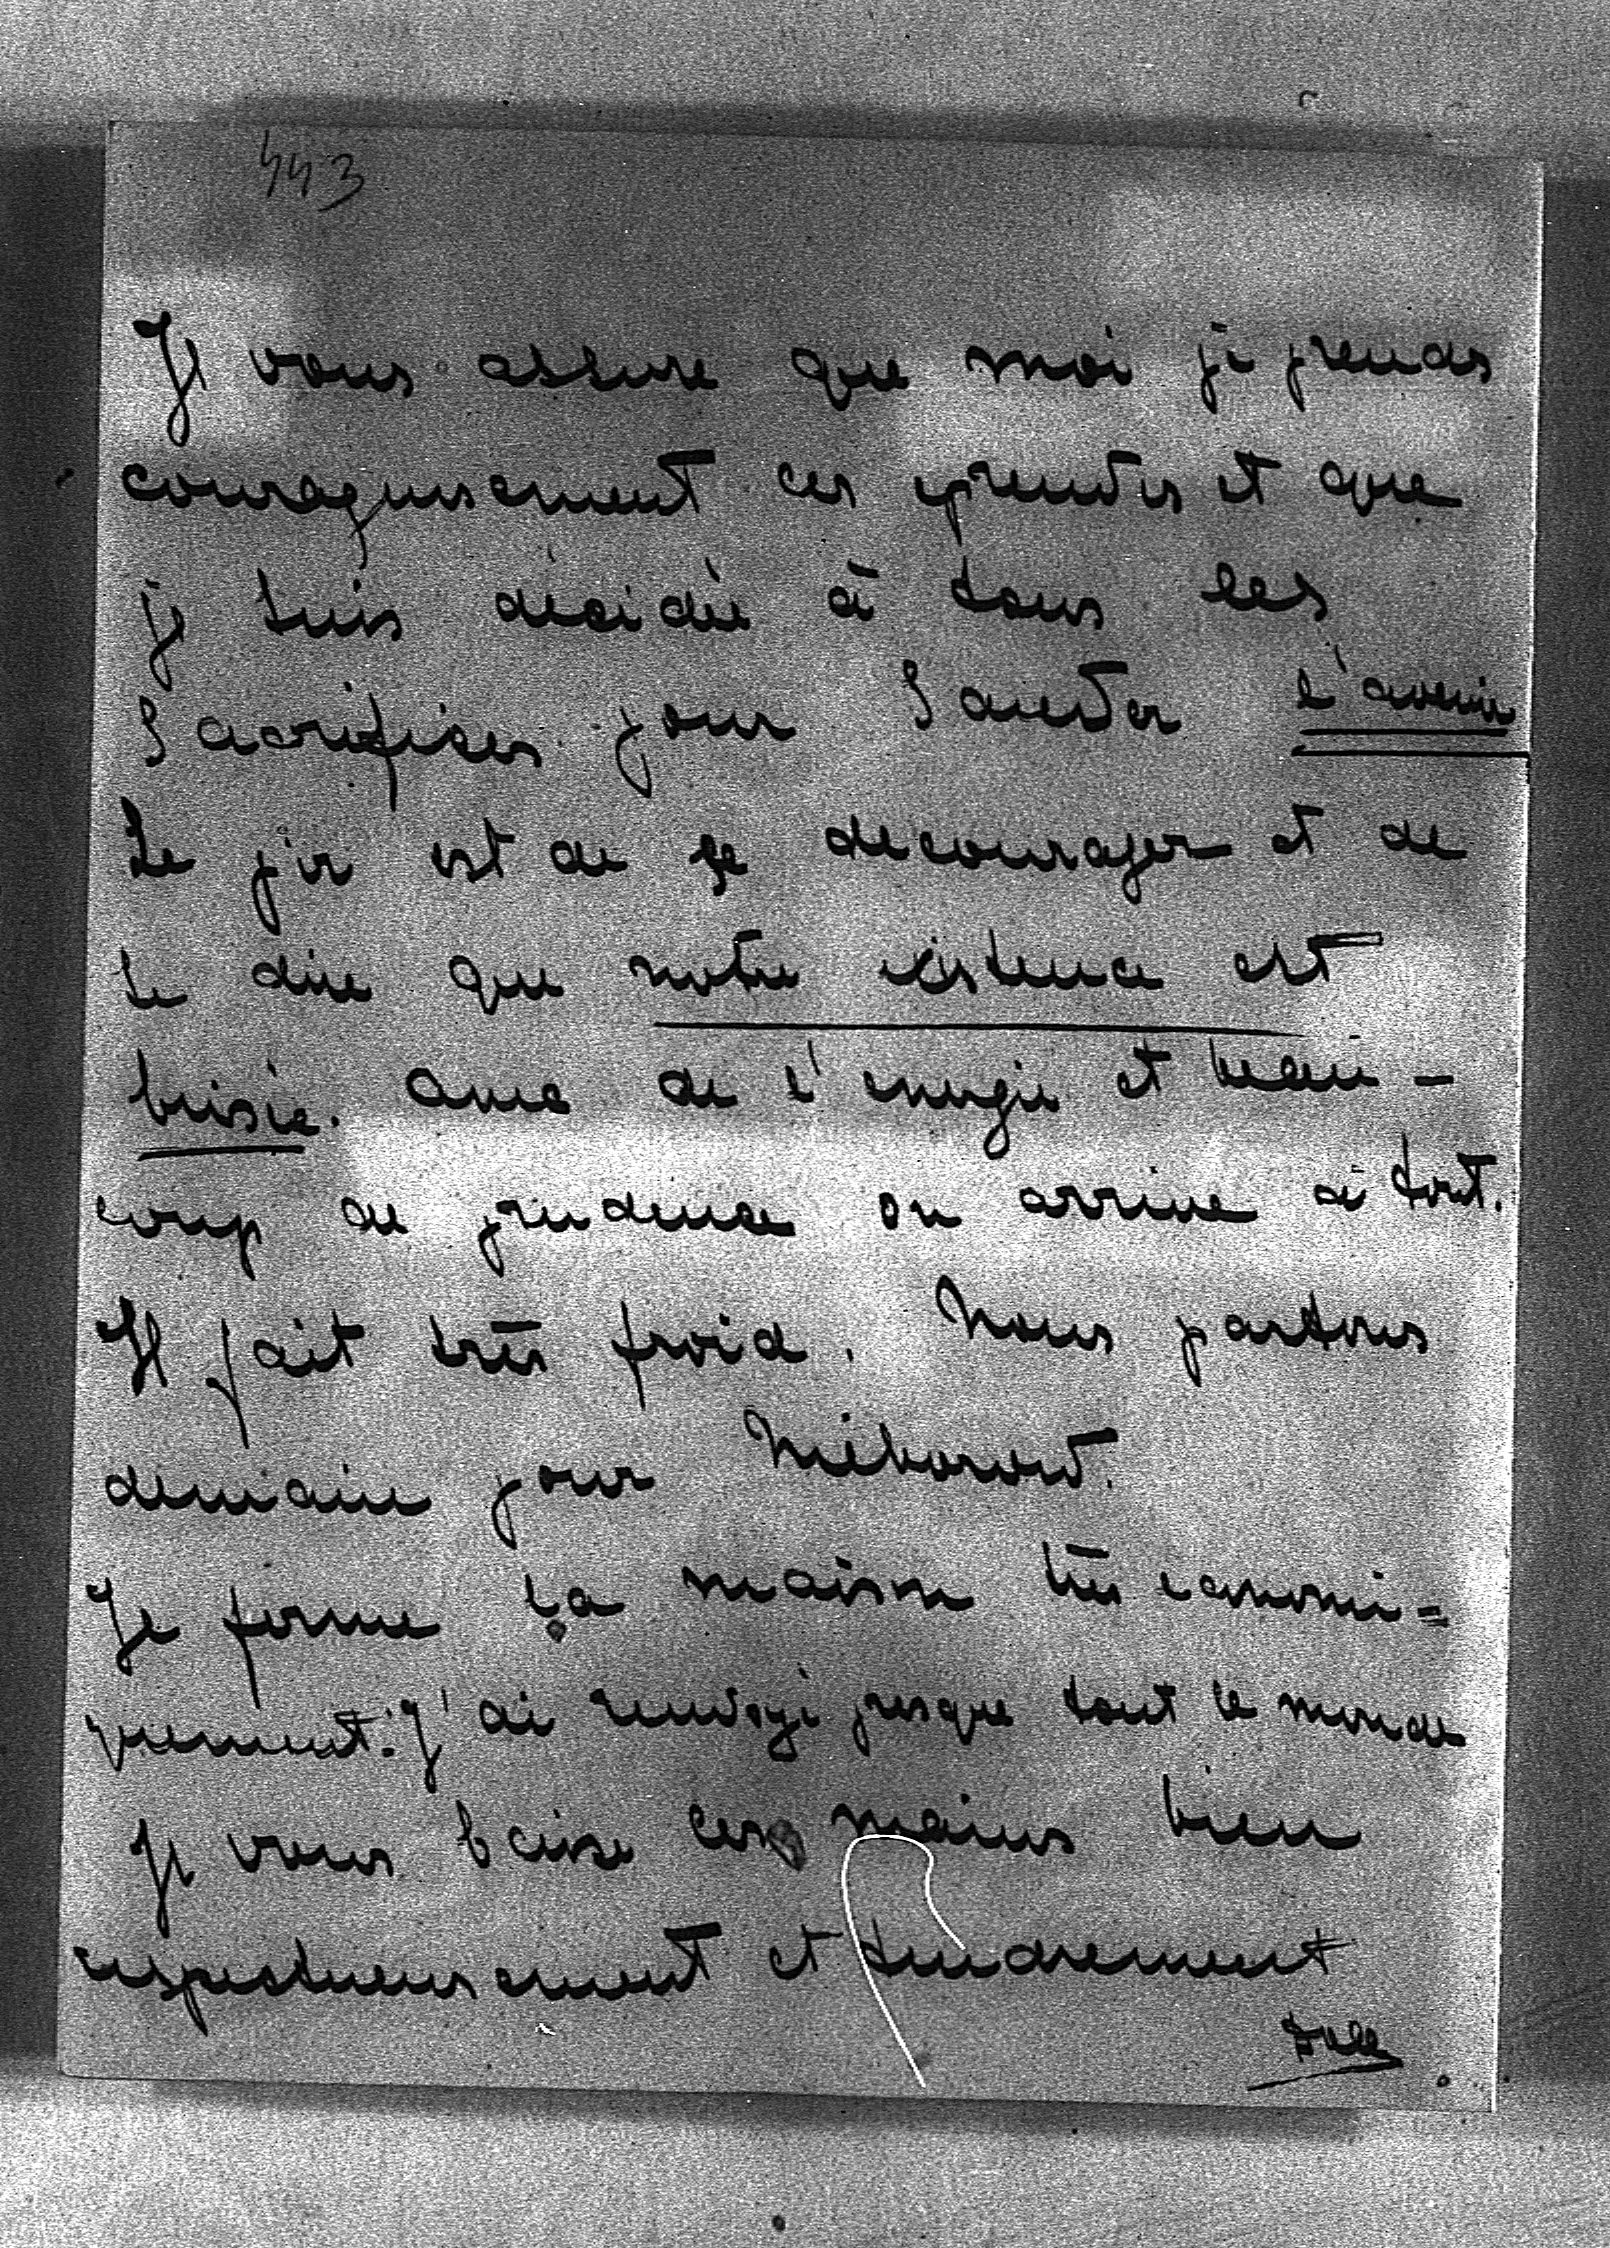 443
Je vous assure que moi je prends
courageusement ces epreuves et que
je suis décidée à tous les
Sacrifices pour Sauver l'avenir
Le pir est de se decourager et de
se dire que notre existence est
brisée. Avec de l'energie et beau-
coup de prudence on arrive à tout.
Il fait très froid. Nous partons
demain pour
Je forme la maison très economi=
quement. J'ai renvoyé presque tout le monde
Je vous baise les mains bien
respectueusement et tendrement